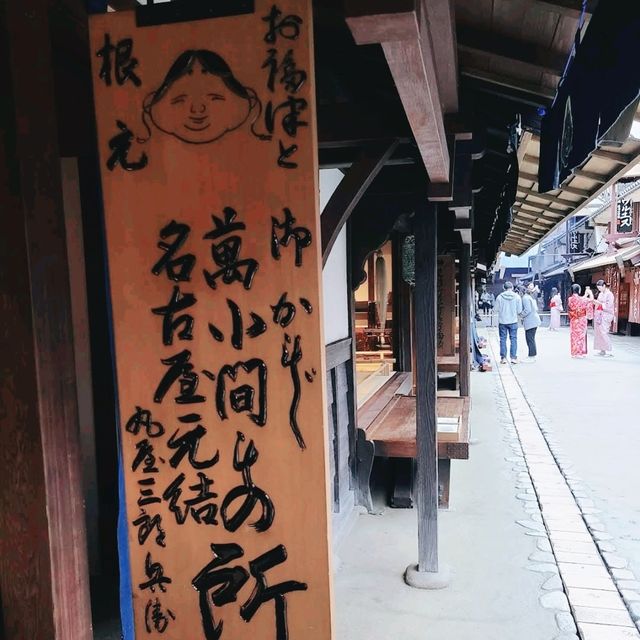 お福津と
根元
御かもじ
萬小間もの所
名古屋元結
丸屋三郎兵衛